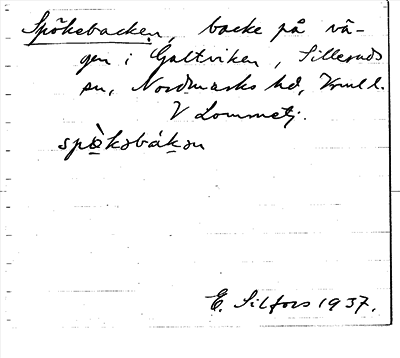 Spöksbacken, backe på vä-
gen i Galtviken, Silleruds
sn, Nordmarks hd, Vrml l.
V Lommetj.
spò̱ksbáḵən
E. Silfors 1937.